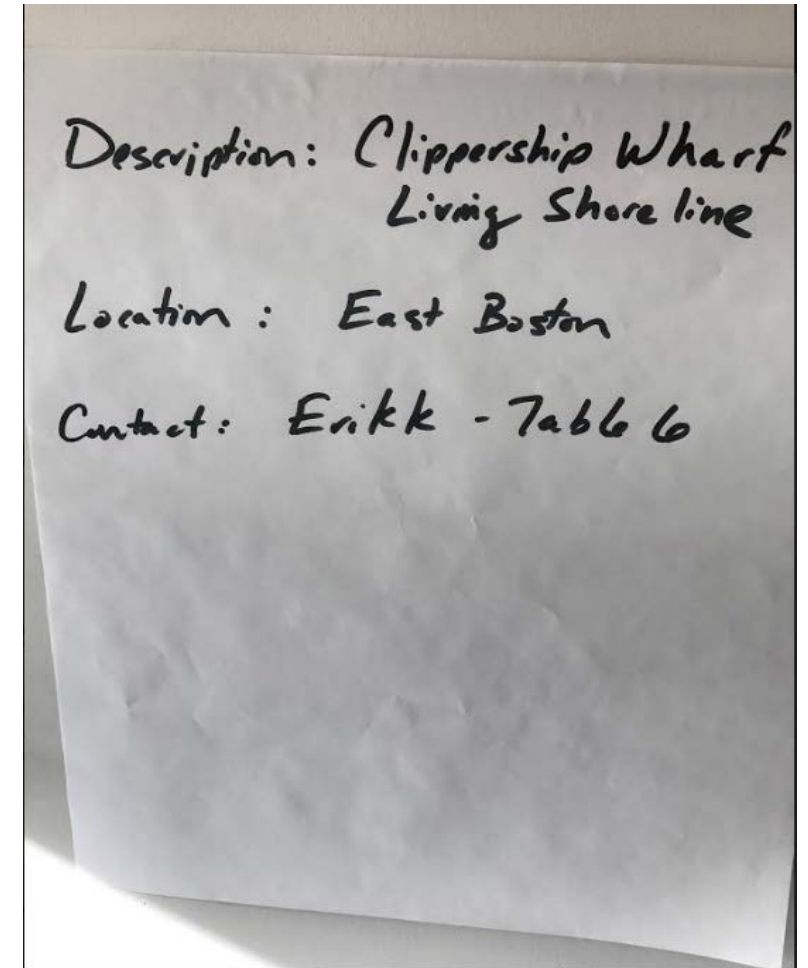 Description: Clippership Wharf
Living Shoreline
Location: East Boston
Contact: Erikk - Table 6